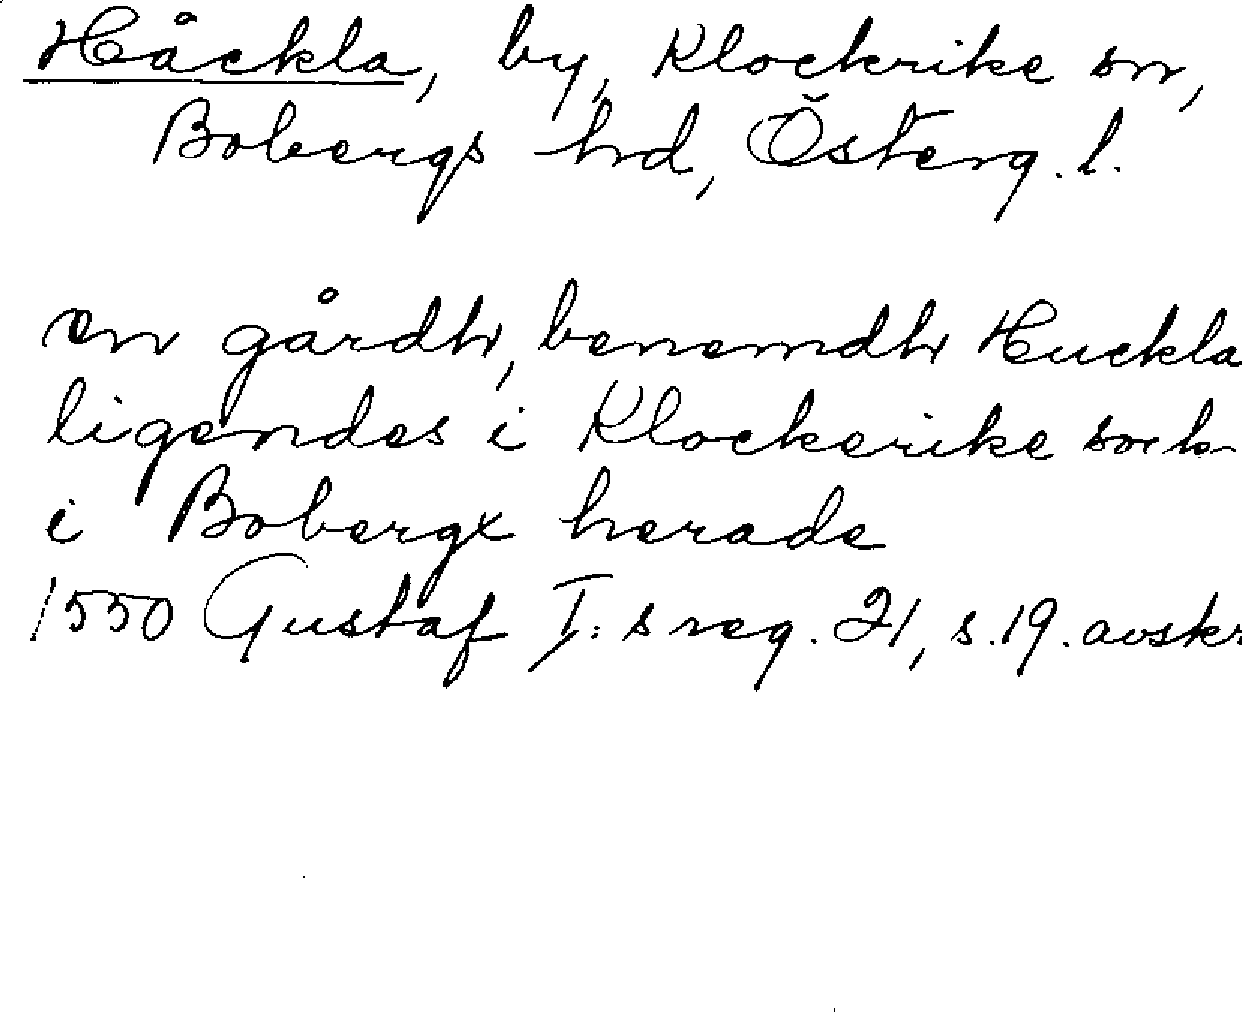 Håckla, by, Klockrike sn,
Bobergs hd, Österg. l.
en gårdh, benemdh Huckla
ligendes i Klockerike sock
i Bobergx herade
1550 Gustaf I:s reg. 21, s. 19. avskr